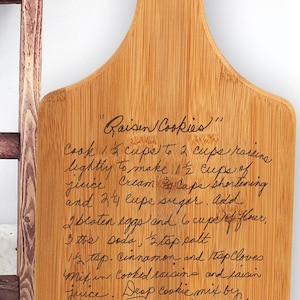 "Raisen Cookies"
Cook 1 ½ cups to 2 cups raisins
lightly to make 1 ½ cups of
juice Cream ¾ Cups shortening
and 2 ¼ cups sugar. add
2 beaten eggs and 6 cups of flour
2 tbs soda, ½ tsp salt
1 ½ tsp. cinnamon and 1 tsp cloves
Mix in cooked raisins and raisin
juice. Drop cookie mix by